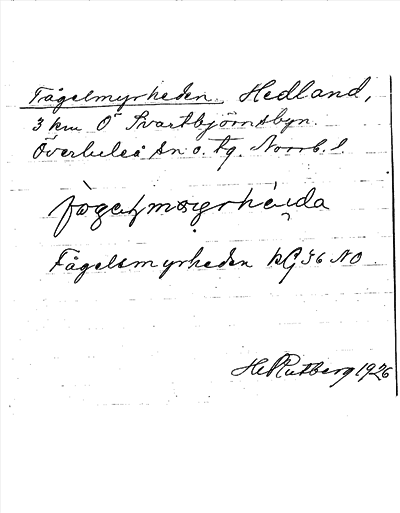 Fågelmyrheden. Hedland,
3 km Ö Svartbjörnsbyn.
Överluleå sn o. tg. Norrb. l.
Fågelsmyrheden KG 36 NO
H. Rutberg 1926